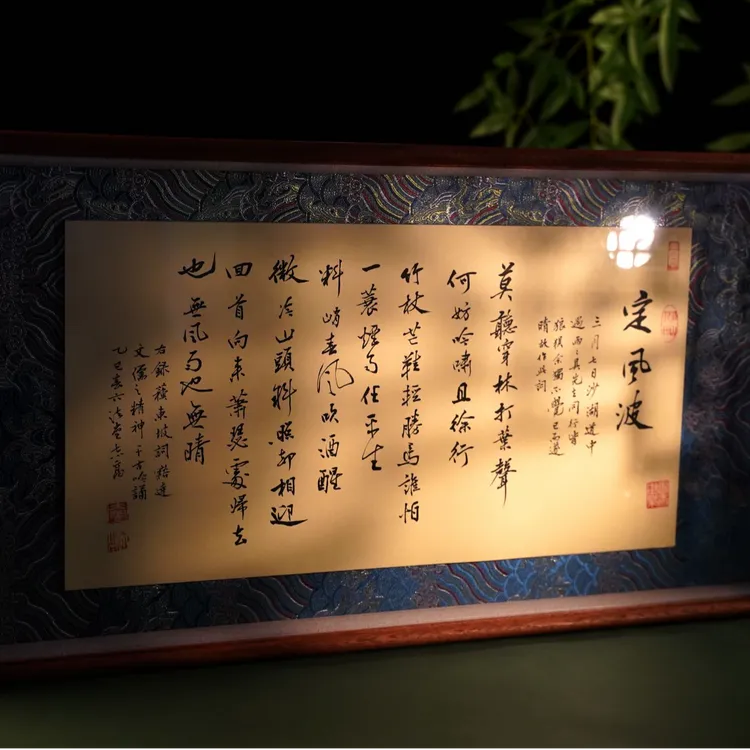 定風波
三月七日沙湖道中
遇雨〻具先去同行皆
狼狽余獨不覺已而遂
晴故作此詞
莫聽穿林打葉聲
何妨吟嘯且徐行
竹杖芒鞋輕勝馬誰怕
一蓑煙雨任平生
料峭春風吹酒醒
微冷山頭斜照却相迎
回首向來蕭瑟處歸去
也無風雨也無晴
右錄蘇東坡詞豁達
文儒之精神千古吟誦
乙巳春六法堂志高